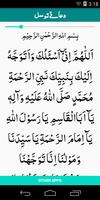 3:18
دعائے توسل
بِسْمِ اللهِ الرَّحْمٰنِ الرَّحِيْمِ
اَللّٰهُمَّ اِنِّيْ اَسْئَلُكَ وَاَتَوَجَّهُ
اِلَيْكَ بِنَبِيِّكَ نَبِيِّ الرَّحْمَةِ
مُحَمَّدٍ صَلَّى اللهُ عَلَيْهِ وَاٰلِهٖ
يَا اَبَا الْقَاسِمِ يَا رَسُوْلَ اللهِ
يَا اِمَامَ الرَّحْمَةِ يَا سَيِّدَنَا
وَمَوْلَانَا اِنَّا تَوَجَّهْنَا
OTHER APPS